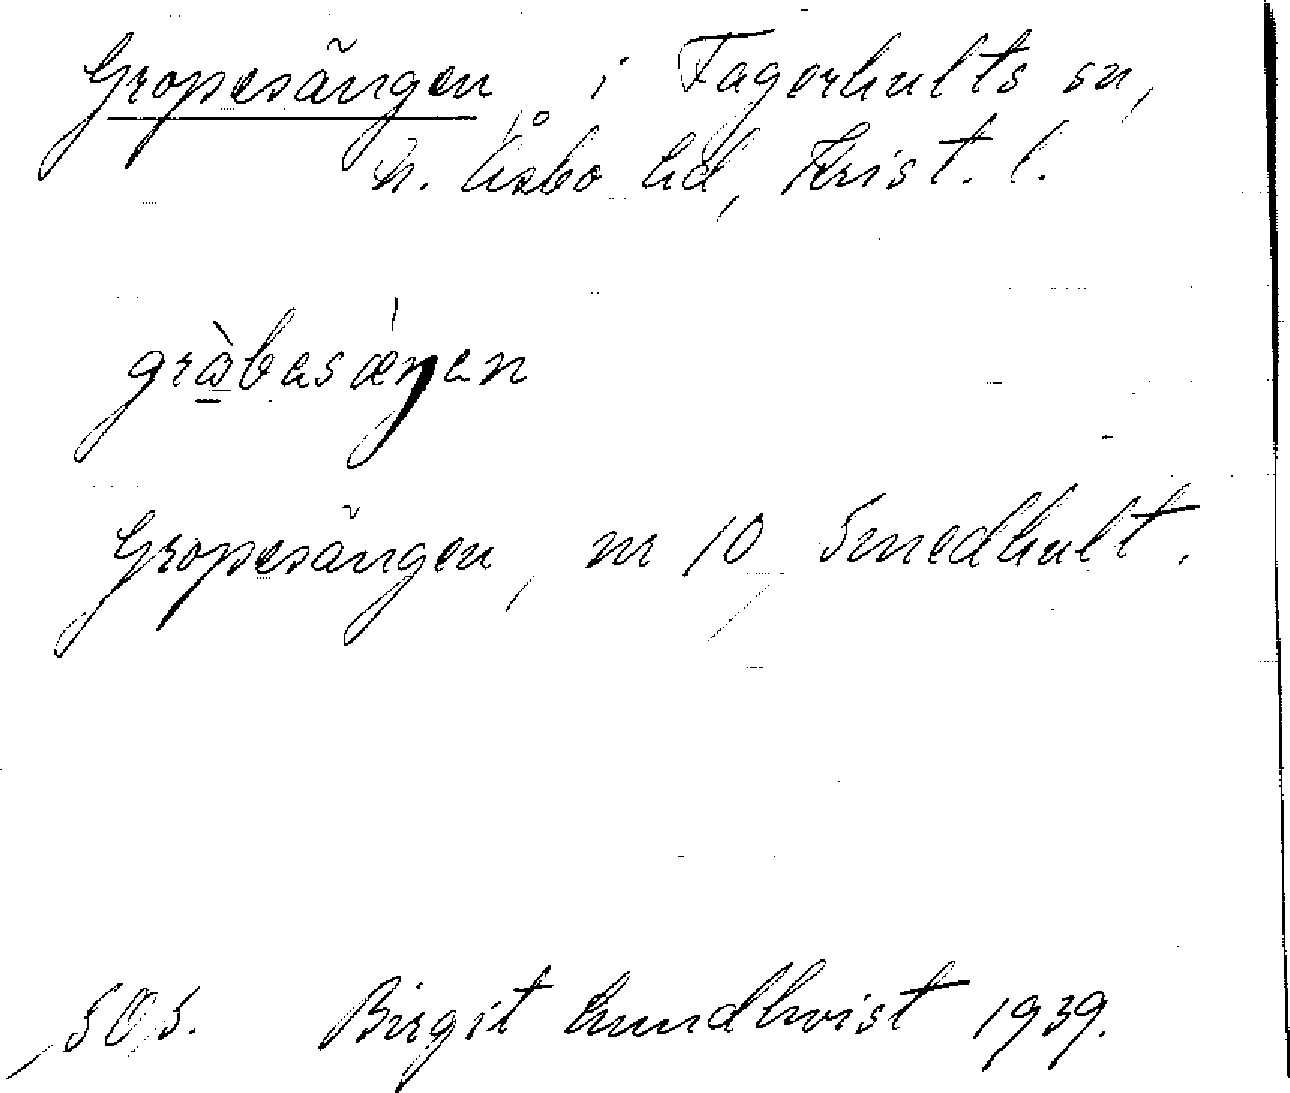 Gropesängen i Fagerhults sn,
N. Åsbo hd, Krist. l.
gràbasæ̀ŋen
Gropesängen, nr 10 Smedhult.
SOS. Birgit Lundkvist 1939.